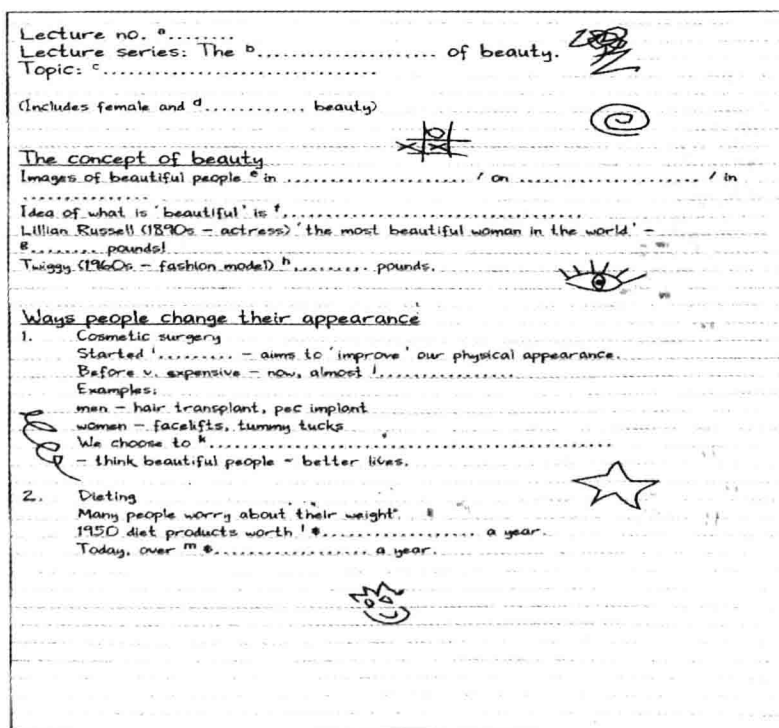 Lecture no. a........
Lecture series: The b.................... of beauty.
Topic: c...............................
(Includes female and d............ beauty)
The concept of beauty
Images of beautiful people e in ...................... / on ...................... / in
..............
Idea of what is 'beautiful' is f....................................
Lillian Russell (1890s - actress) 'the most beautiful woman in the world' -
g......... pounds!
Twiggy (1960s - fashion model) h......... pounds.
Ways people change their appearance
1. Cosmetic surgery
Started i......... - aims to 'improve' our physical appearance.
Before v. expensive - now, almost j.................
Examples:
men - hair transplant, pec implant
women - facelifts, tummy tucks
We choose to k................................................
- think beautiful people - better lives.
2. Dieting
Many people worry about their weight.
1950 diet products worth l $................... a year.
Today, over m $................... a year.